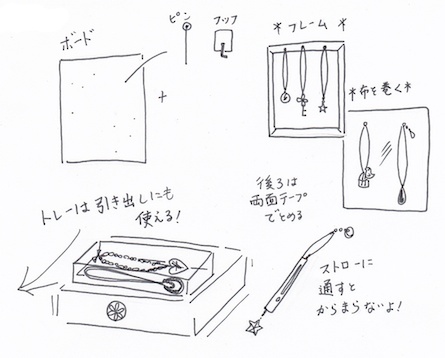 ボード
ピン
フック
*フレーム*
*布を巻く*
後ろは
両面テープ
でとめる
トレーは引き出しにも
使える！
ストローに
通すと
からまらないよ！